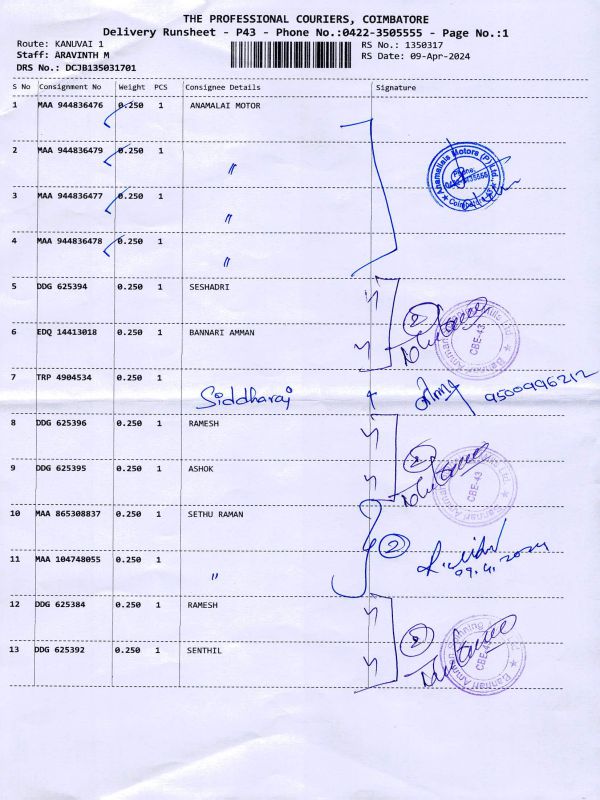 THE PROFESSIONAL COURIERS, COIMBATORE
Delivery Runsheet - P43 - Phone No.:0422-3505555 - Page No.:1
Route: KANUVAI 1 RS No.: 1350317
Staff: ARAVINTH M RS Date: 09-Apr-2024
DRS No.: DCJB135031701
S No Consignment No Weight PCS Consignee Details Signature
1 MAA 944836476 0.250 1 ANAMALAI MOTOR
2 MAA 944836479 0.250 1 〃
3 MAA 944836477 0.250 1 〃
4 MAA 944836478 0.250 1 〃
Anamallais Motors (P) Ltd.,
Phone:
Coimbatore-43
5 DDG 625394 0.250 1 SESHADRI
6 EDQ 14413018 0.250 1 BANNARI AMMAN
2
CBE-43
7 TRP 4904534 0.250 1 Siddharaj 9500996212
8 DDG 625396 0.250 1 RAMESH
9 DDG 625395 0.250 1 ASHOK
2
CBE-43
10 MAA 865308837 0.250 1 SETHU RAMAN
11 MAA 104748055 0.250 1 〃
2
09.4.2024
12 DDG 625384 0.250 1 RAMESH
13 DDG 625392 0.250 1 SENTHIL
2
Bannari Amman Spinning
CBE-43